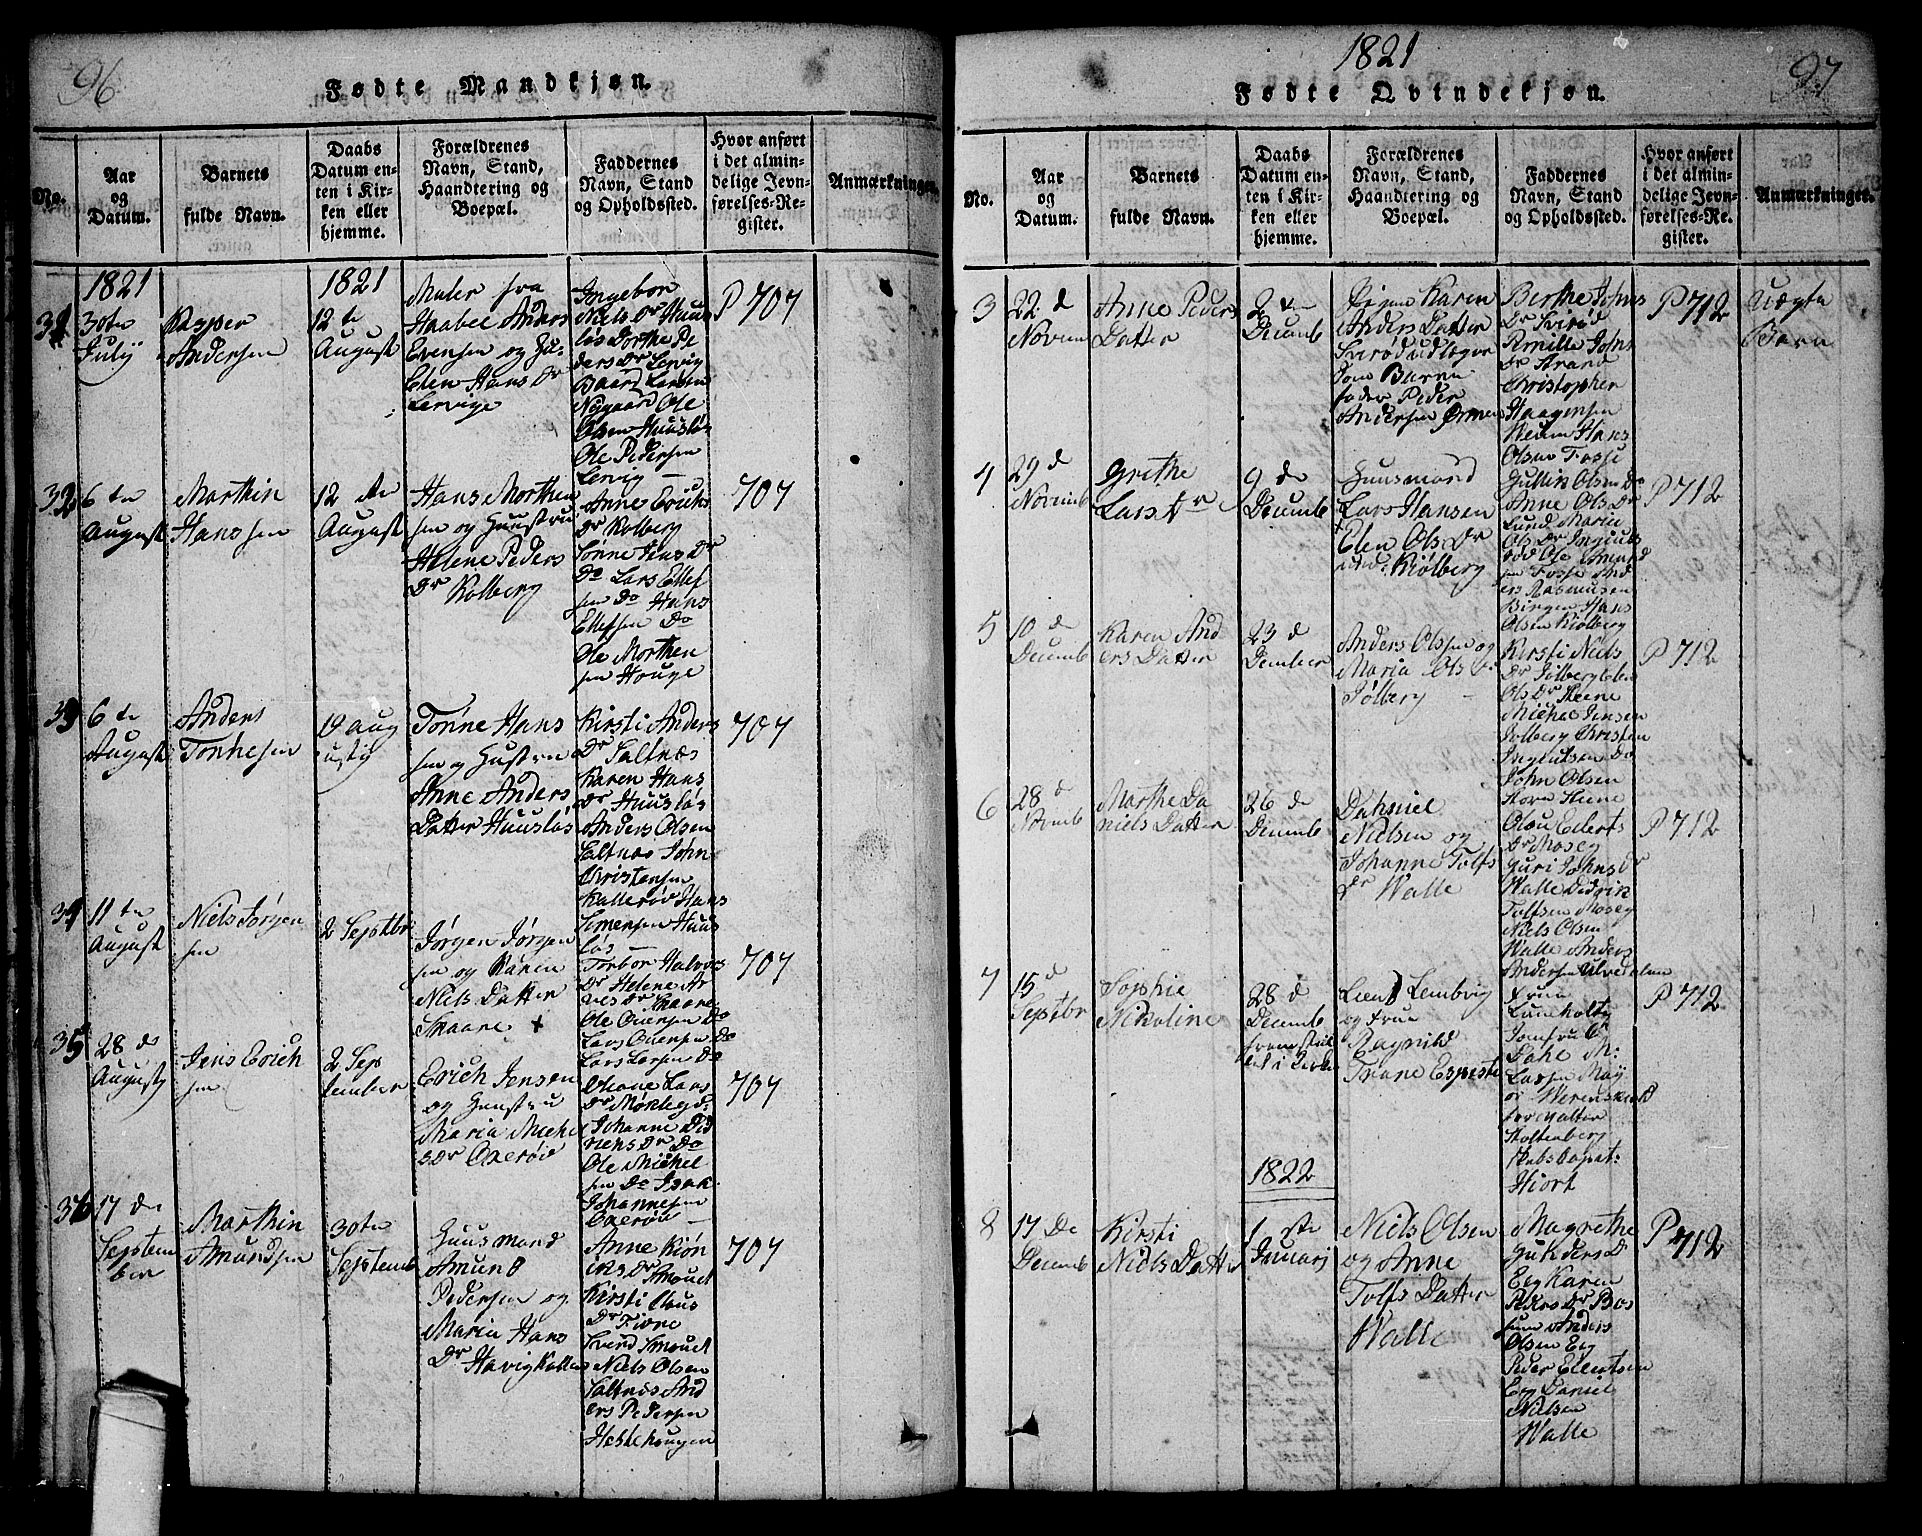 96
Fødte Mandkjøn.
No.
Aar
og
Datum.
Barnets
fulde Navn.
Daabs
Datum en-
ten i Kir-
ken eller
hjemme.
Forældrenes
Navn, Stand,
Haandtering og
Boepæl.
Faddernes
Navn, Stand
og Opholdssted.
Hvor anført
i det almin-
delige Jevn-
førelses-Re-
gister.
Anmærkninger.
1821
31
30te
July
Kasper
Andersen
1821
12 te
August
Maler fra
Haabet Anders
Evensen og Hu-
Elen Hans Dr
Lervige
Ingebor
Niels Dr Huus
løs Dorthe Pe
ders Dr Lervig
Baard Larsen
Nygaard Ole
Olsen Huusløs
Ole Pedersen
Lervig
P 707
32
6 te
August
Marthin
Hanssen
12 te
August
Hans Morthen
sen og Huustru
Helene Peders
Dr Kolberg
Anne Erichs
Dr Kolberg
Tønne Jens Dr
Do Lars Ellef
sen Do Hans
Ellefsen Do
Ole Morthen
sen Houge
707
33
6 te
August
Anders
Tønnesen
19 aug
usty
Tønne Hans
sen og Hustru
Anne Anders
Datter Huusløs
Kirsti Anders
Dr Saltnæs
Karen Hans
Dr Huusløs
Anders Olsen
Saltnæs John
Christensen
Kallerød Hans
Simensen Huus
løs
707
34
11 te
August
Niels Jørgen
sen
2 Septbr
Jørgen Jørgen
sen og Karen
Niels Datter
Skaare +
Torbor Halvors
Dr Helene Ar
ves Dr Skaare
Ole Ouensen Do
Lars Ouensen Do
Lars Larsen Do
707
35
28 de
Augusty
Jens Erich
sen
2 Sep
tember
Erich Jensen
og Huustru
Maria Miche
s Dr Oxerød
Johanne Did
richs Dr Do
Ole Michel
sen Do Isak
Johannesen
Oxerød
707
36
17 de
Septem
ber
Marthin
Amundsen
30te
Septemb
Huusmand
Amund
Pedersen og
Maria Hans
Dr Havigkollen
Kirsti Claus
Svend Smouet
Niels Olsen
Saltnæs And
ers Pedersen
Hestehougen
707
1821
97
Fødte Qvindekjøn.
No.
Aar
og
Datum.
Barnets
fulde Navn.
Daabs
Datum en-
ten i Kir-
ken eller
hjemme.
Forældrenes
Navn, Stand,
Haandtering og
Boepæl.
Faddernes
Navn, Stand
og Opholdssted.
Hvor anført
i det almin-
delige Jevn-
førelses-Re-
gister.
Anmærkninger.
3
22 d
Novem
Anne Peders
Datter
2 de
Decemb
Pigen Karen
Anders Datter
Svirød udlægger
som Barne
fader Peder
Andersen Ørmen
Berthe Johns
Dr Svirød
Pernille Johns
Dr Strand
Christopher
Haagensen
Hans
Olsen Fosse
P 712
Uægte
Barn
4
29 d
Novemb
Grethe
Lars Dr
9 de
Decemb
Huusmand
Lars Hansen
Elen Ols Dr
Kiølberg
Gullin Olsen Do
Anne Ols Dr
Lund Maria
Ols Dr
Ole Amund
sen Fosse And
ers Rasmusen
Bingen Hans
Olsen Kiølberg
P 712
5
10 de
Decemb
Karen And
ers Datter
23 d
Dember
Anders Olssen og
Maria Ols Dr
Sølberg
Kirsti Niels
Dr Sølberg Elen
Ols Dr Steene
Michel Jensen
Solberg Christen
Ingelutsen Do
John Olsen
Store Steene
P 712
6
28 d
Novmb
Marthe Da
niels Datter
26 de
Decemb
Dahniel
Nielsen og
Johanne Tolfs
Dr Walle
Olou Ellerts
Dr Moseg
Guri Johns Dr
Walle Didrik
Tolfsen Moseg
Niels Olsen
Walle Anders
Andersen Ulvedalen
P 712
7
15 d
Septbr
Sophie
Nikoline
28 d
Decemb
fremstil
let i Kirke
Lieut Lembvig
og Frue
Ragnild
Trane Espeste
Frue
Lumholtz
Jomfru C
Dahe M:
Larsen May
or Werenskiold
forvalter
Stoltenberg
Skibscapat:
Hiort
P 712
1822
8
17 De
Decemb
Kirsti
Niels Datter
1 ste
Januarj
Niels Olsen
og Anne
Tolfs Datter
Walle
Magrethe
Gulders D
Eeg Karen
Peders Dr Bos
sum Anders
Olsen Eeg
Peder Ellertsen
Eeg Daniel
Nielsen
Walle
P 712